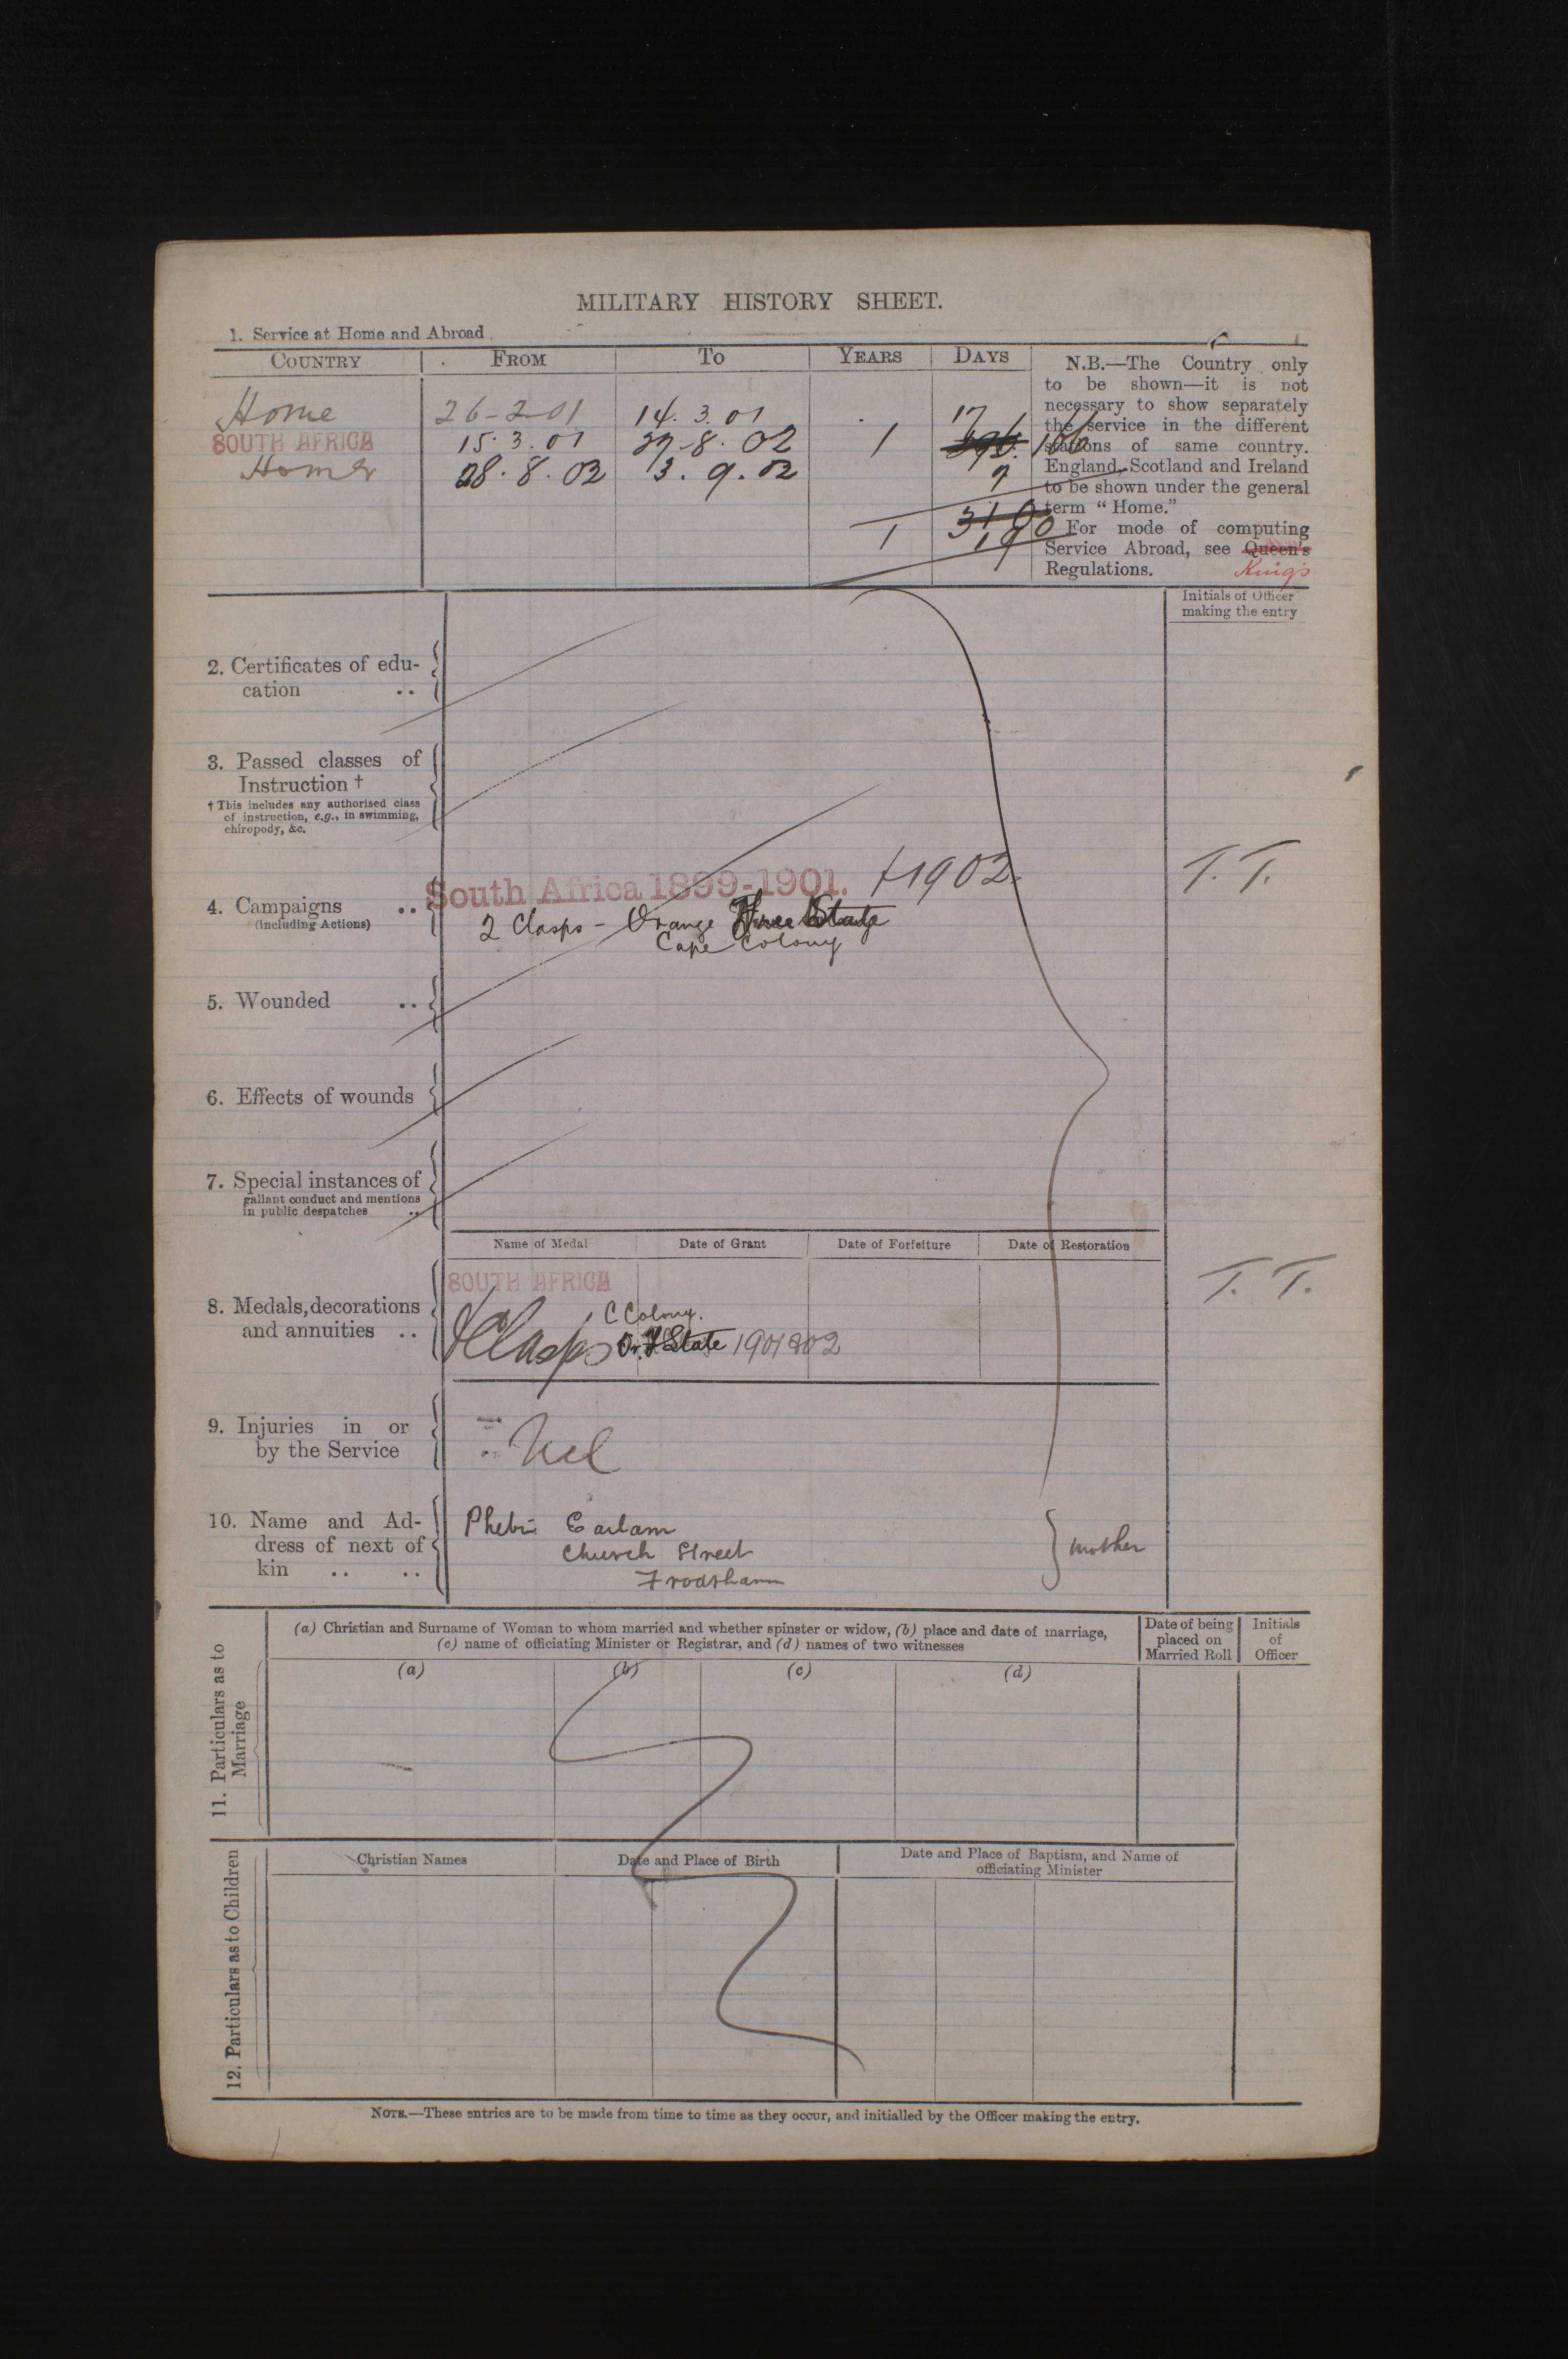 MILITARY HISTORY SHEET.
1. Service at Home and Abroad
COUNTRY FROM TO YEARS DAYS
Home 26-2-01 14. 3. 01 17
SOUTH AFRICA 15. 3. 01 27-8. 02 1 166
Home 28. 8. 02 3. 9. 02 7
1 190
N.B.—The Country only
to be shown—it is not
necessary to show separately
the service in the different
stations of same country.
England, Scotland and Ireland
to be shown under the general
term "Home."
For mode of computing
Service Abroad, see Queen's
Regulations. King's
Initials of Officer
making the entry
2. Certificates of edu-
cation ..
3. Passed classes of
Instruction †
† This includes any authorised class
of instruction, e.g., in swimming,
chiropody, &c.
South Africa 1899-1901. +1902. T. T.
4. Campaigns ..
(including Actions)
2 Clasps - Orange Free State
Cape Colony
5. Wounded ..
6. Effects of wounds
7. Special instances of
gallant conduct and mentions
in public despatches ..
Name of Medal Date of Grant Date of Forfeiture Date of Restoration
SOUTH AFRICA T. T.
8. Medals, decorations
and annuities ..
C Colony.
Clasps O. F State 1901 902
9. Injuries in or
by the Service
Nil
10. Name and Ad-
dress of next of
kin .. ..
Earlam
Church Street
Frodsham
mother
11. Particulars as to
Marriage
(a) Christian and Surname of Woman to whom married and whether spinster or widow, (b) place and date of marriage,
(c) name of officiating Minister or Registrar, and (d) names of two witnesses
Date of being
placed on
Married Roll
Initials
of
Officer
(a) (b) (c) (d)
12. Particulars as to Children
Christian Names Date and Place of Birth
Date and Place of Baptism, and Name of
officiating Minister
NOTE.—These entries are to be made from time to time as they occur, and initialled by the Officer making the entry.